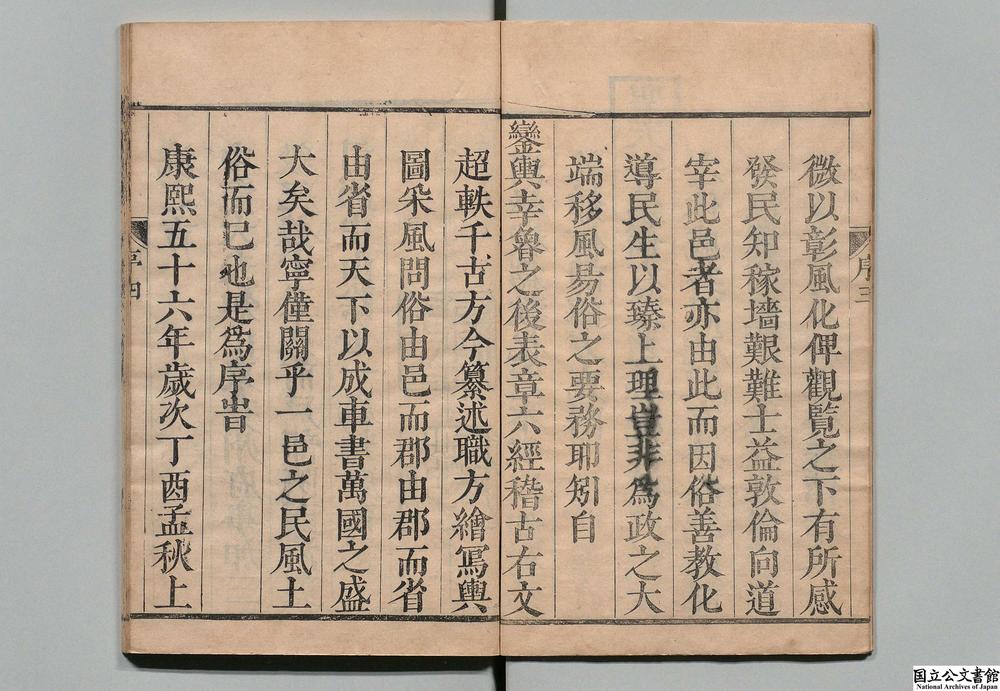 微以彰風化俾觀覧之下有所感
發民知稼墻艱難士益敦倫向道
宰此邑者亦由此而因俗善教化
導民生以臻上理豈非為政之大
端移風易俗之要務耶矧自
鑾輿幸魯之後表章六經稽古右文
序三
超軼千古方今纂述職方繪寫輿
圖采風問俗由邑而郡由郡而省
由省而天下以成車書萬國之盛
大矣哉寧僅關乎一邑之民風土
俗而已也是為序旹
康熙五十六年歲次丁酉孟秋上
序四
国立公文書館
National Archives of Japan